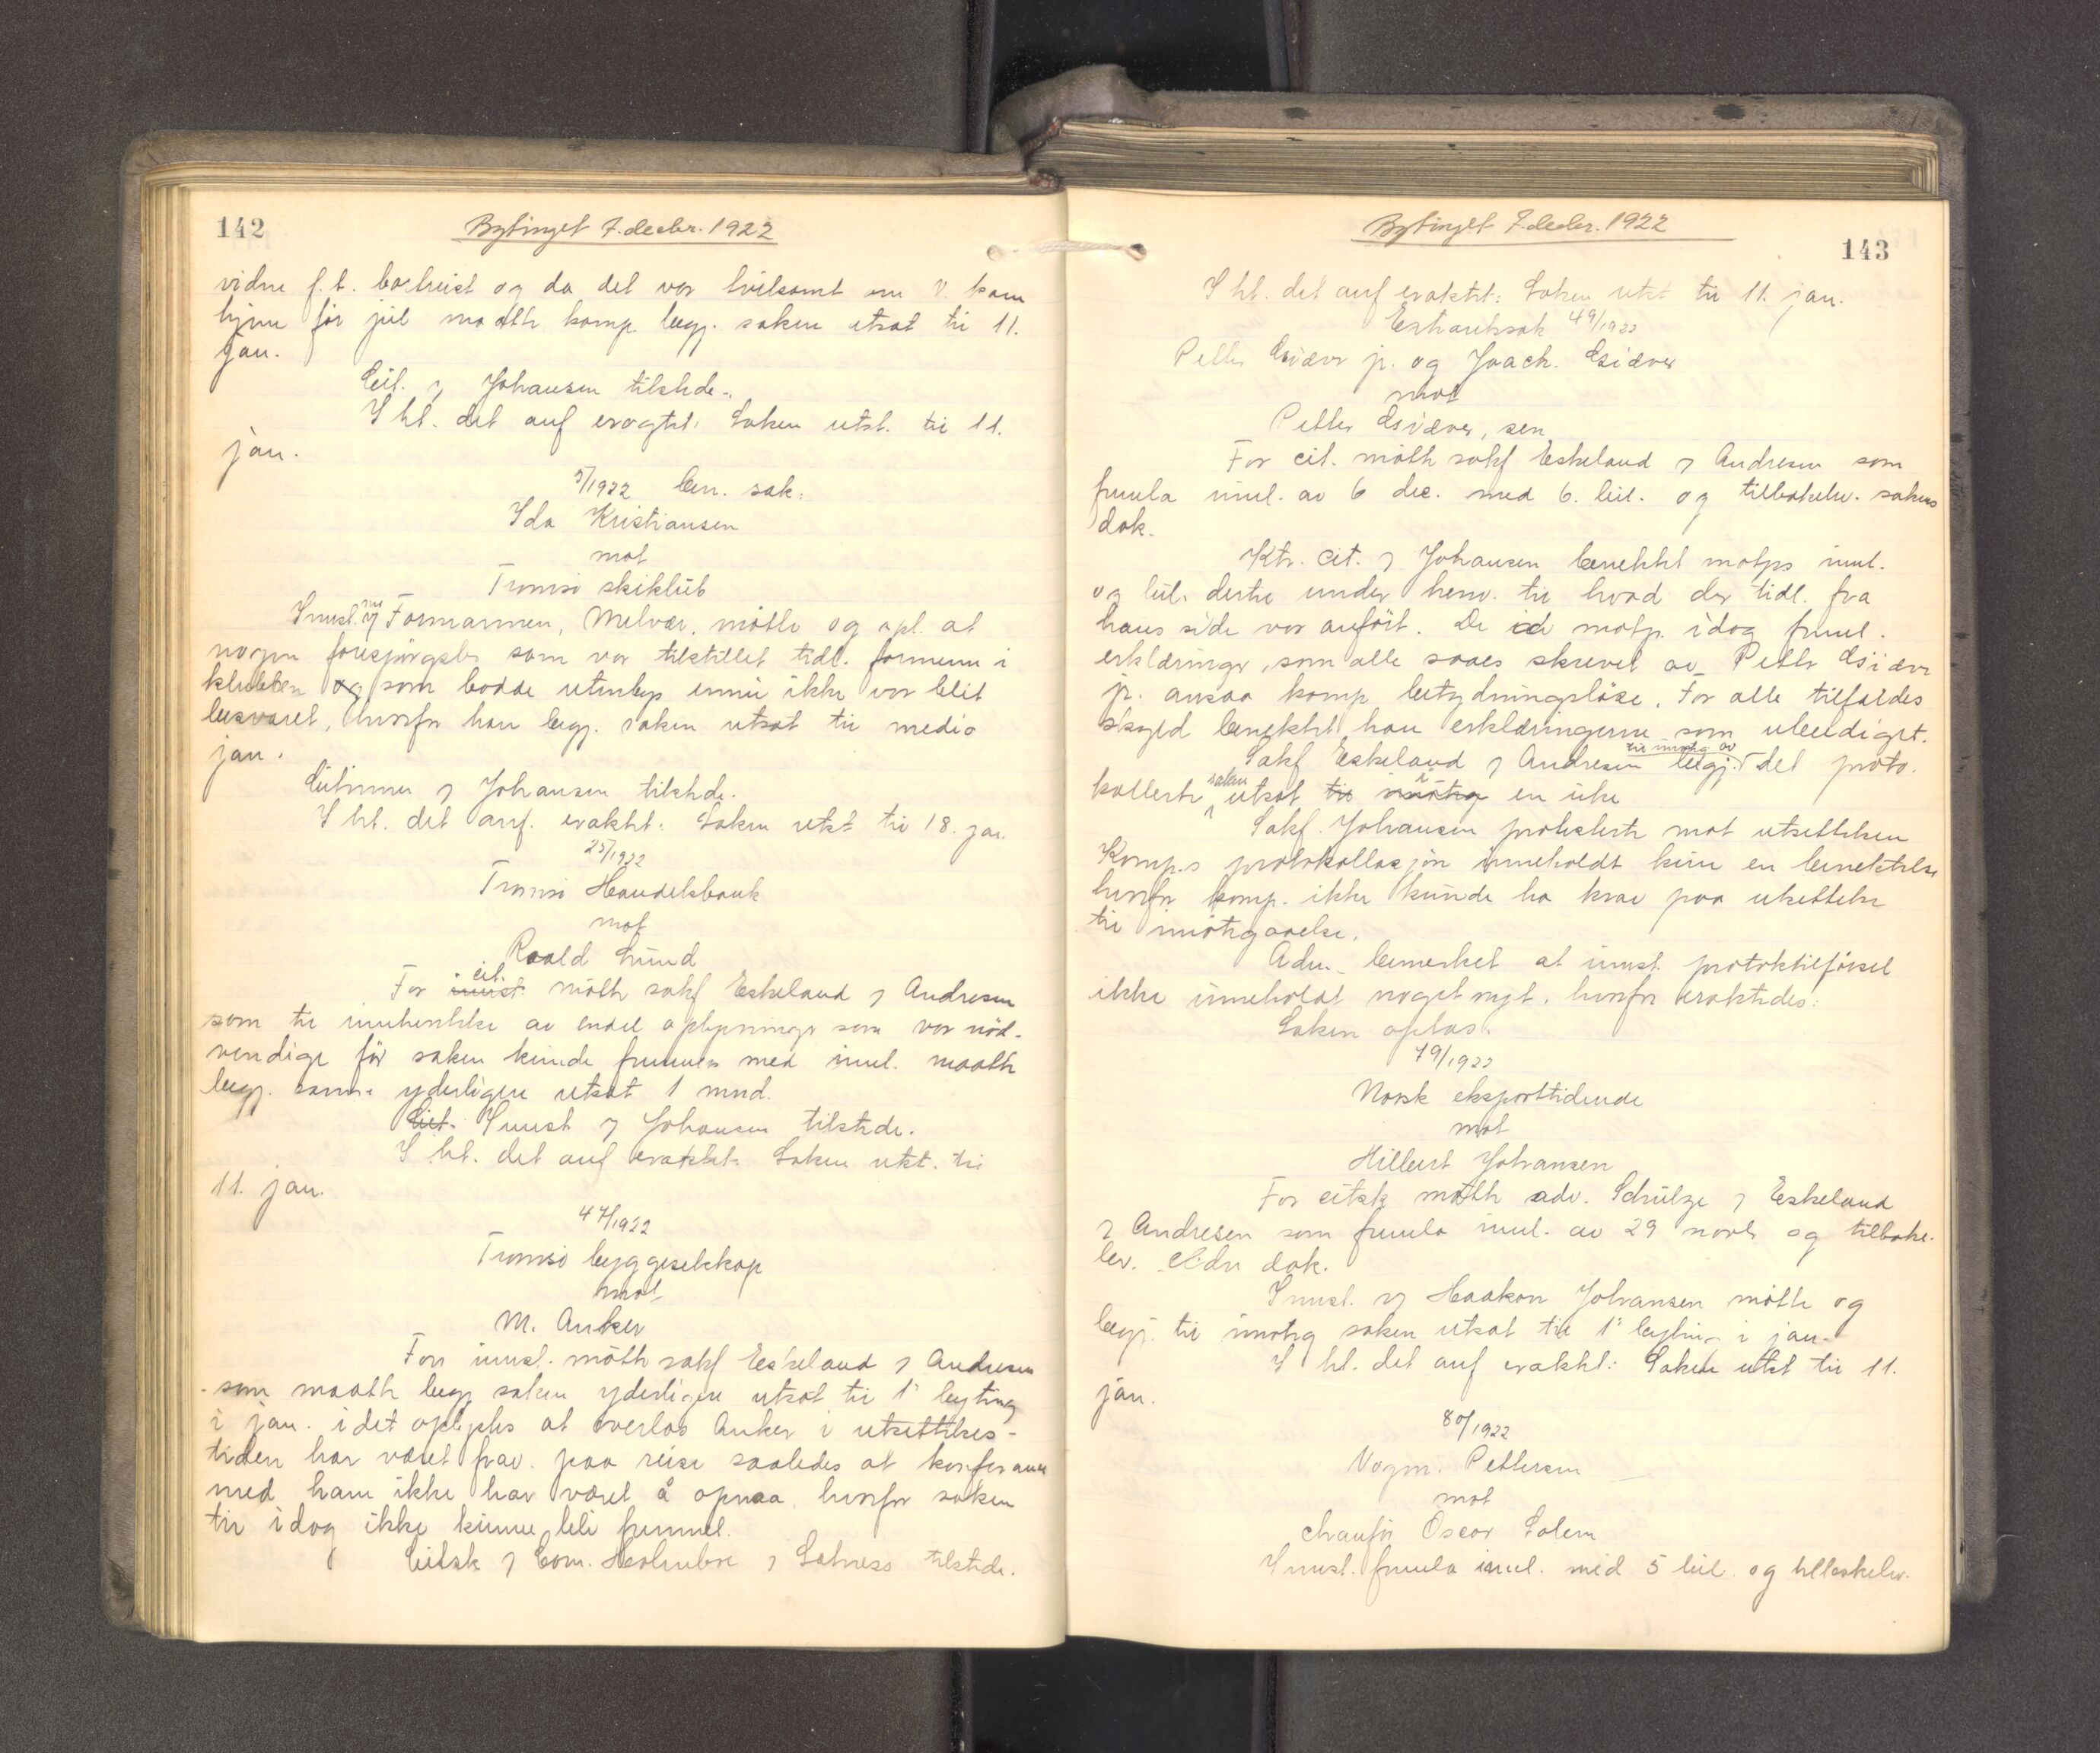 142
Bytinget 7. decbr. 1922
vidne f.t. bortreist og da det var tvilsomt om V. kom
hjem før jul maatte komp. begj. saken utsat til 11.
jan.
Cit. v Johansen tilstede.
I hl. det anf eragtet: Saken utst. til 11.
jan.
5/1922 ben. sak:
Ida Kristiansen
mot
Tromsø skiklub
Innst. v Formannen, Melvær, møtte og opl. at
nogen forespørgsler som var tilstillet tidl. formenn i
klubben og som bodde utenbys ennu ikke var blit
besvaret, hvorfor han begj. saken utsat til medio
jan.
Citinnen v Johansen tilstede.
I hl. det anf. eraktet: Saken utst til 18. jan.
25/1922
Tromsø Handelsbank
mot
Roald Lund
For innst. cit. møtte sakf Eskeland v Andresen
som til innhentelse av endel oplysninger som var nød-
vendige før saken kunde fremmes med innl. maatte
begj. samme yderligere utsat 1 mnd.
Cit. Innst v Johansen tilstede.
I hl. det anf eraktet: Saken utst. til
11. jan.
47/1922
Tromsø byggeselskap
mot
M. Anker
For innst. møtte sakf Eskeland v Andresen
som maatte begj saken yderligere utsat til 1' byting
i jan. idet oplystes at overlos Anker i utsettelses-
tiden har været frav. paa reise saaledes at konferanse
med ham ikke har været å opnaa, hvorfor saken
til idag ikke kunne bli fremmet.
Citsk v Com. Holmboe v Sætness tilstede.
Bytinget 7. decbr. 1922
143
I hl. det anf eraktet: Saken utst til 11. jan.
Ekstraretssak 49/1922
Petter Esiæver jr. og Joach. Esiæver
mot
Petter Esiæver, sen
For cit. møtte sakf Eskeland v Andresen som
fremla innl. av 6 dec. med 6. bil. og tilbakelev. sakens
dok.
Ktr. cit. v Johansen benektet motps innl.
og bil. dertil under henv. til hvad der tidl. fra
hans side var anført. De av motp. idag freml.
erklæringer, som alle saaes skrevet av Petter Esiæver
jr. ansaa komp. betydningsløse. For alle tilfældes
skyld benektet han erklæringerne som ubeediget.
Sakf Eskeland v Andresen begj. til imøtg av det proto-
kollerte saken utsat til imøtg i en uke
Sakf. Johansen protesterte mot utsettelsen
Komp.s protokollasjon inneholdt kun en benektelse
hvorfor komp. ikke kunde ha krav paa utsettelse
til imøtegaaelse.
Adm. bemerket at innst. protoktilførsel
ikke inneholdt noget nyt, hvorfor eraktedes:
Saken optas.
79/1922
Norsk eksporttidende
mot
Hilbert Johansen
For citsk møtte adv. Schulze v Eskeland
v Andresen som fremla innl. av 29 novb og tilbake-
lev. eldre dok.
Innst. v Haakon Johansen møtte og
begj. til imøtg saken utsat til 1' byting i jan.
I hl. det anf eraktet: Saken utst til 11.
jan.
80/1922
Vogm. Pettersen
mot
chaufør Oscar Solem
Innst. fremla innl. med 5 bil og tilbakelev.